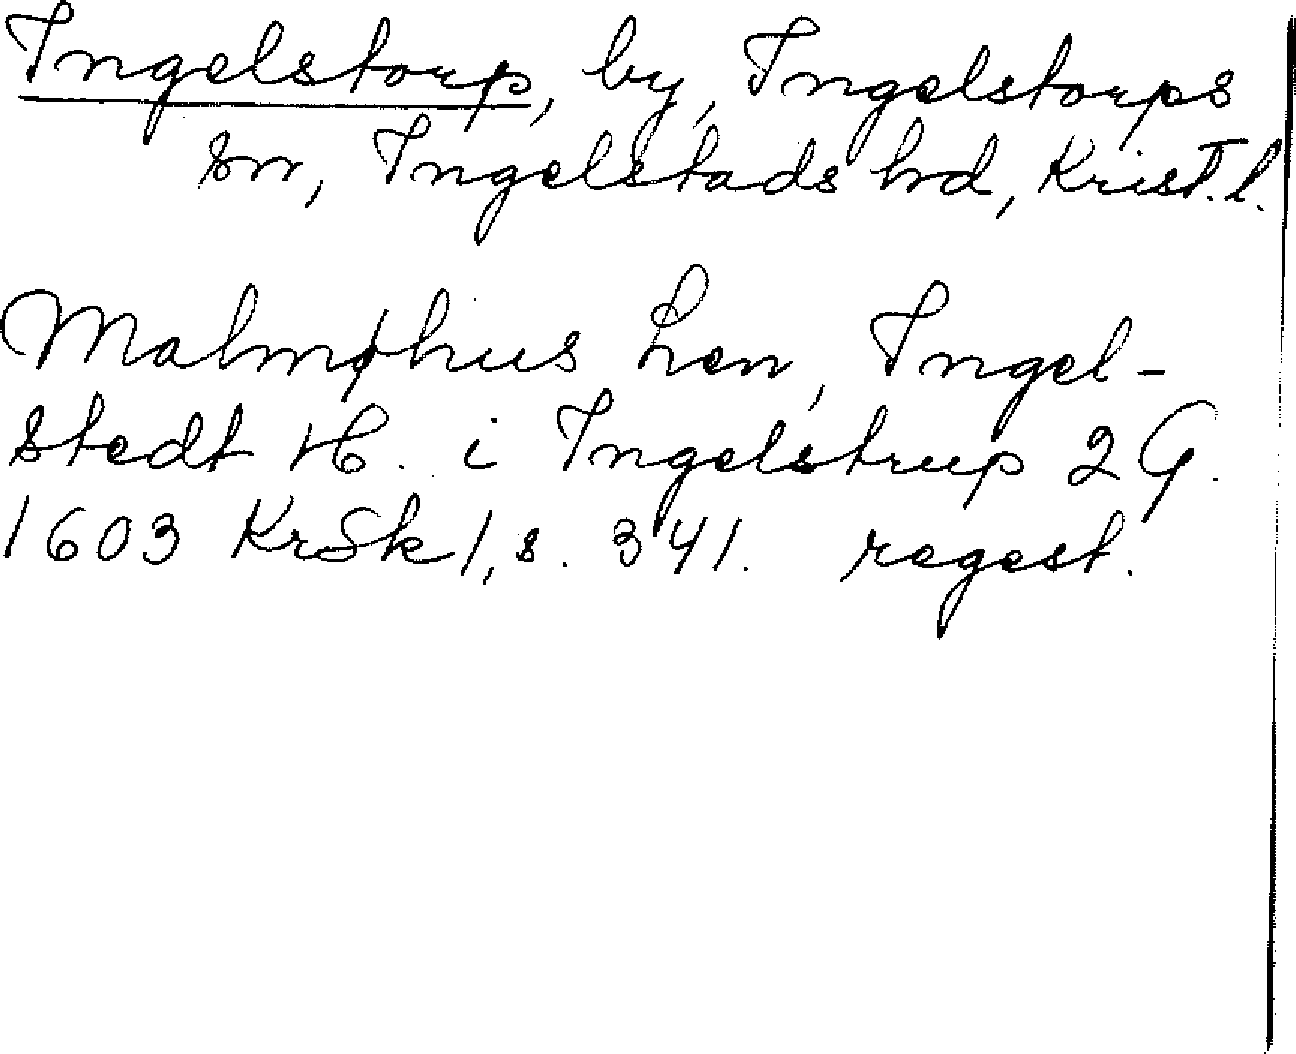 Ingelstorp, by, Ingelstorps
sn, Ingelstads hd, Krist. l.
Malmøhus Len, Ingel-
stedt H. i Ingelstrup 2 G.
1603 KrSk 1, s. 341. regest.